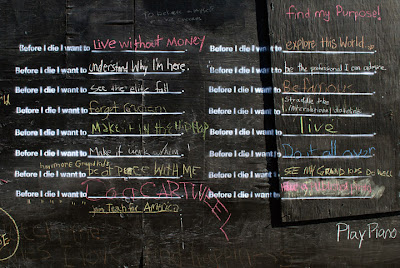 Before I die I want to Live without MONEY
Before I die I want to understand Why I'm here.
Before I die I want to see the elite fall
Before I die I want to forget
Before I die I want to Make it in the HipHop
Before I die I want to Make it work
Before I die I want to be at peace WITH ME
Before I die I want to CARTWHEEL
Join Teach for America.
find my Purpose!
Before I die I want to explore this World
Before I die I want to be the professional I can
Before I die I want to Be famous
Before I die I want to Straddle the
International dateline
Before I die I want to live
Before I die I want to Do it all over
Before I die I want to SEE MY GRAND DO WELL
Before I die I want to
Play Piano